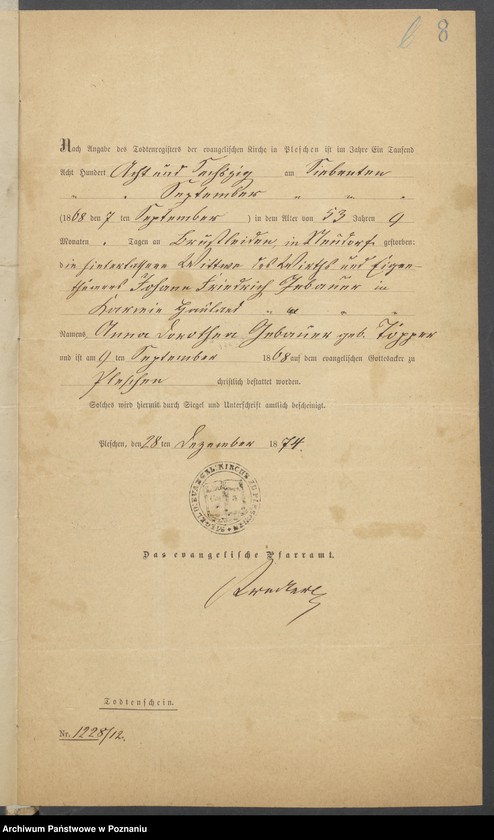 8
Nach Angabe des Todtenregisters der evangelischen Kirche in Pleschen ist im Jahre Ein Tausend
Acht Hundert Acht und Sechszig am Siebenten
" " September " " "
(1868 den 7 ten September ) in dem Alter von 53 Jahren 9
Monaten " Tagen an Brustleiden, in Neudorf gestorben:
die hinterlassene Wittwe des Wirths und Eigen-
thümers Johann Friedrich Gebauer in
Hauland " " " "
Namens, Anna Dorothea Gebauer geb. Töpper
und ist am 9 ten September 1868 auf dem evangelischen Gottesacker zu
Pleschen christlich bestattet worden.
Solches wird hiermit durch Siegel und Unterschrift amtlich bescheinigt.
Pleschen, den 28 ten Dezember 1874.
Das evangelische Pfarramt.
Todtenschein.
Nr. 1228/12.
Archiwum Państwowe w Poznaniu